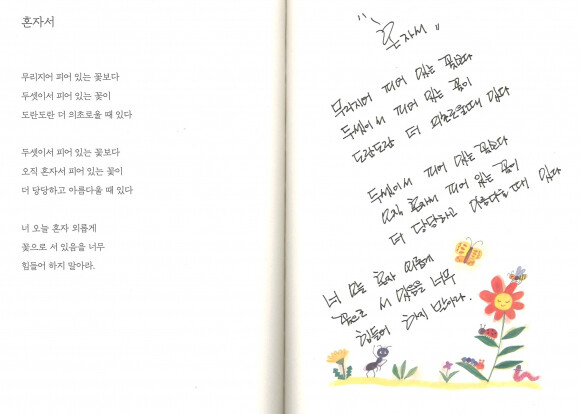 혼자서
무리지어 피어 있는 꽃보다
두셋이서 피어 있는 꽃이
도란도란 더 의초로울 때 있다
두셋이서 피어 있는 꽃보다
오직 혼자서 피어 있는 꽃이
더 당당하고 아름다울 때 있다
너 오늘 혼자 외롭게
꽃으로 서 있음을 너무
힘들어 하지 말아라.
"혼자서"
무리지어 피어 있는 꽃보다
두셋이서 피어 있는 꽃이
도란도란 더 의초로울 때 있다
두셋이서 피어 있는 꽃보다
오직 혼자서 피어 있는 꽃이
더 당당하고 아름다울 때 있다
너 오늘 혼자 외롭게
꽃으로 서 있음을 너무
힘들어 하지 말아라.